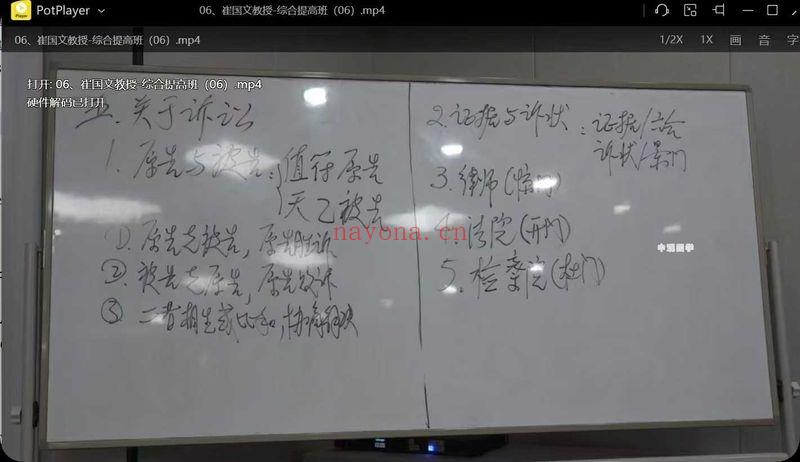 PotPlayer
06、崔国文教授-综合提高班（06）.mp4
06、崔国文教授-综合提高班（06）.mp4
1/2X 1X 画 音 字
打开: 06、崔国文教授-综合提高班（06）.mp4
硬件解码已打开
五.关于诉讼
1.原告与被告:{值符原告
天乙被告
①.原告克被告，原告胜诉
②.被告克原告，原告败诉
③.二者相生或比和，协商解决
2.证据与诉状：证据/六合
诉状/景门
3.律师(惊门)
4.法院(开门)
5.检察院(杜门)
nayona.cn